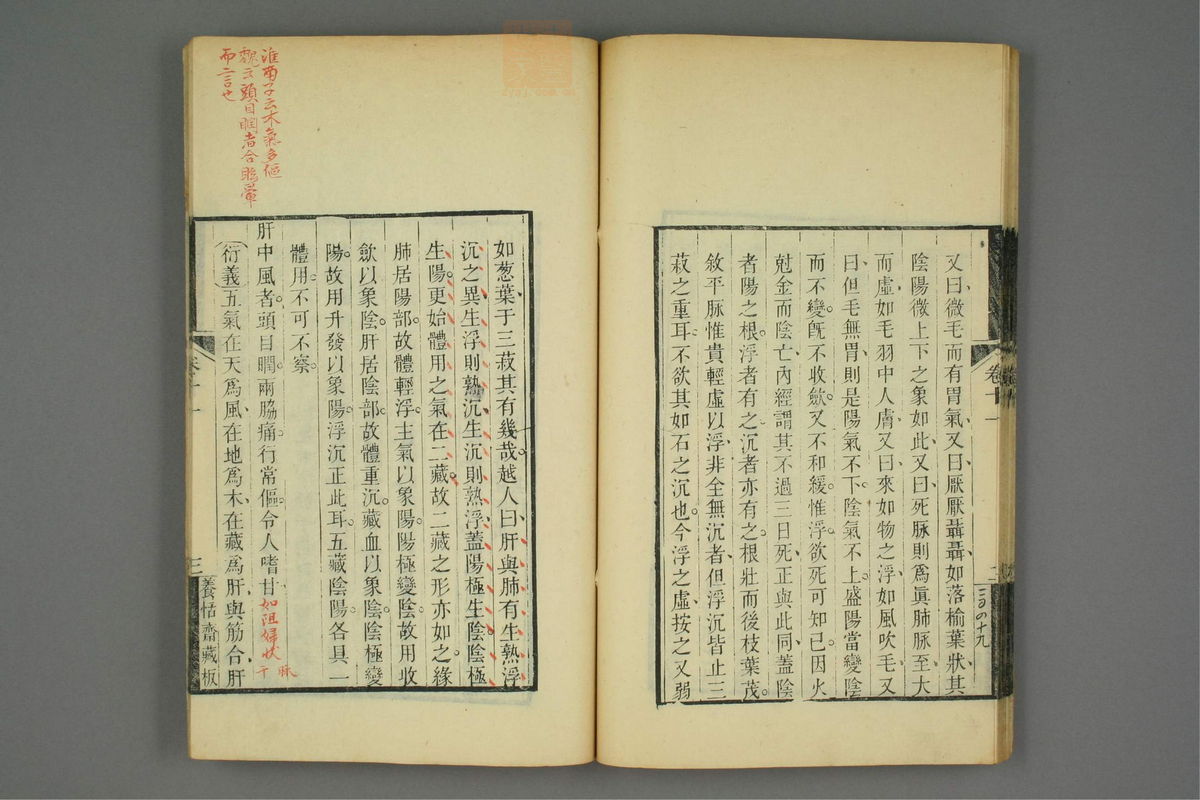 又曰微毛而有胃氣又曰厭厭聶聶如落榆葉狀其
陰陽微上下之象如此又曰死脉則爲眞肺脉至大
而虛如毛羽中人膚又曰來如物之浮如風吹毛又
曰但毛無胃則是陽氣不下陰氣不上盛陽當變陰
而不變旣不收斂又不和緩惟浮欲死可知已因火
尅金而陰亡內經謂其不過三日死正與此同蓋陰
者陽之根浮者有之沉者亦有之根壯而後枝葉茂
敘平脉惟貴輕虛以浮非全無沉者但浮沉皆止三
菽之重耳不欲其如石之沉也今浮之虛按之又弱
卷十一
二
三ノ十九
如葱葉于三菽其有幾哉越人曰肝與肺有生熟浮
沉之異生浮則熟沉生沉則熟浮蓋陽極生陰陰極
生陽更始體用之氣在二藏故二藏之形亦如之緣
肺居陽部故體輕浮主氣以象陽陽極變陰故用收
歛以象陰肝居陰部故體重沉藏血以象陰陰極變
陽故用升發以象陽浮沉正此耳五藏陰陽各具一
體用不可不察
肝中風者頭目瞤兩脇痛行常傴令人嗜甘如阻婦狀
衍義五氣在天爲風在地爲木在藏爲肝與筋合肝
卷十一
三
養恬齋藏板
淮南子云木氣多傴
魏云頭目瞤者合眩暈
而言也
脉